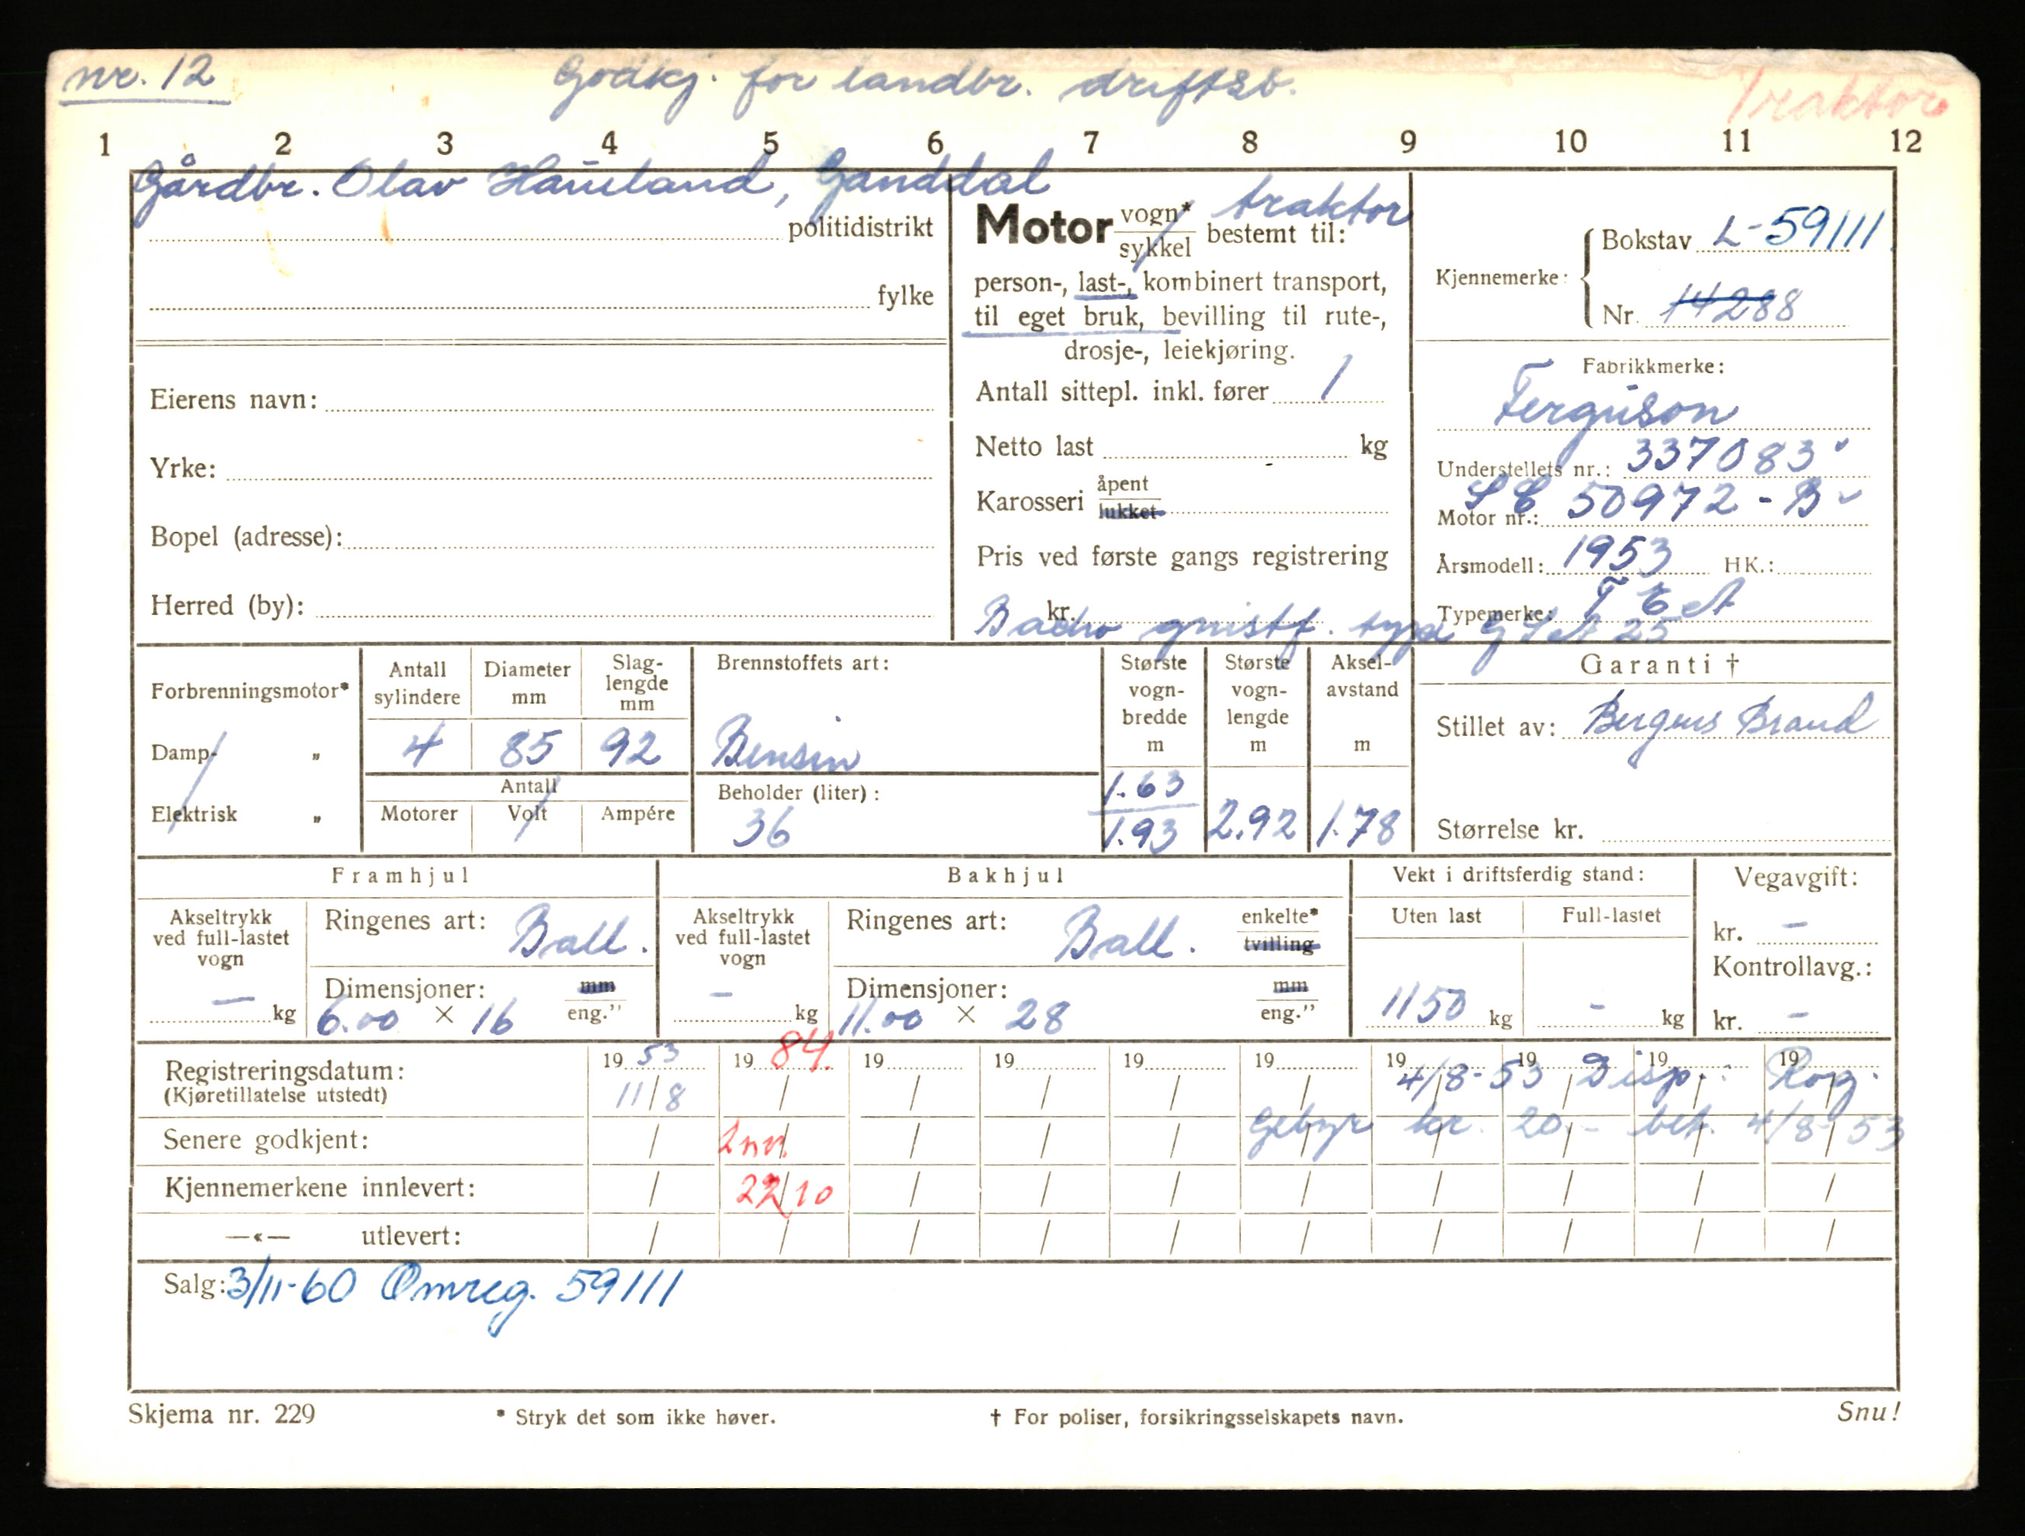 nr. 12 Godkj. for landbr. driftsb. Traktor
1 2 3 4 5 6 7 8 9 10 11 12
Gårdbr. Olav Haueland, Ganddal
politidistrikt
fylke
Eierens navn:
Yrke:
Bopel (adresse):
Herred (by):
Motor vogn* / sykkel bestemt til: traktor
person-, last-, kombinert transport,
til eget bruk, bevilling til rute-,
drosje-, leiekjøring.
Antall sittepl. inkl. fører 1
Netto last kg
Karosseri åpent / lukket
Pris ved første gangs registrering
kr.
gnistf. type G S A 25
Kjennemerke: Bokstav L-59111
Nr. 14288
Fabrikkmerke:
Ferguson
Understellets nr.: 337083
Motor nr.: S E 50972-B
Årsmodell: 1953 HK.:
Typemerke: T E A
Forbrenningsmotor*
Damp- „
Elektrisk „
Antall sylindere 4
Diameter mm 85
Slag-lengde mm 92
Antall
Motorer Volt Ampére
Brennstoffets art:
Bensin
Beholder (liter):
36
Største vogn-bredde m 1.63 / 1.93
Største vogn-lengde m 2.92
Aksel-avstand m 1.78
Garanti †
Stillet av: Bergens Brand
Størrelse kr.
Framhjul
Akseltrykk ved full-lastet vogn — kg
Ringenes art: Ball.
Dimensjoner: mm / eng."
6.00 × 16
Bakhjul
Akseltrykk ved full-lastet vogn — kg
Ringenes art: Ball. enkelte* / tvilling
Dimensjoner: mm / eng."
11.00 × 28
Vekt i driftsferdig stand:
Uten last Full-lastet
1150 kg - kg
Vegavgift:
kr. —
Kontrollavg.:
kr. —
Registreringsdatum: 19 53 19 84. 19 19 19 19 19 19 19 19
(Kjøretillatelse utstedt) 11/8 / / / / / / / / /
4/8-53 Disp.: Rog.
Gebyr kr. 20.- bet. 4/8-53
Senere godkjent: / / / / / / / / / /
Inn.
Kjennemerkene innlevert: / 22/10 / / / / / / / /
—«— utlevert: / / / / / / / / / /
Salg: 3/11-60 Omreg. 59111
Skjema nr. 229 * Stryk det som ikke høver. † For poliser, forsikringsselskapets navn. Snu!